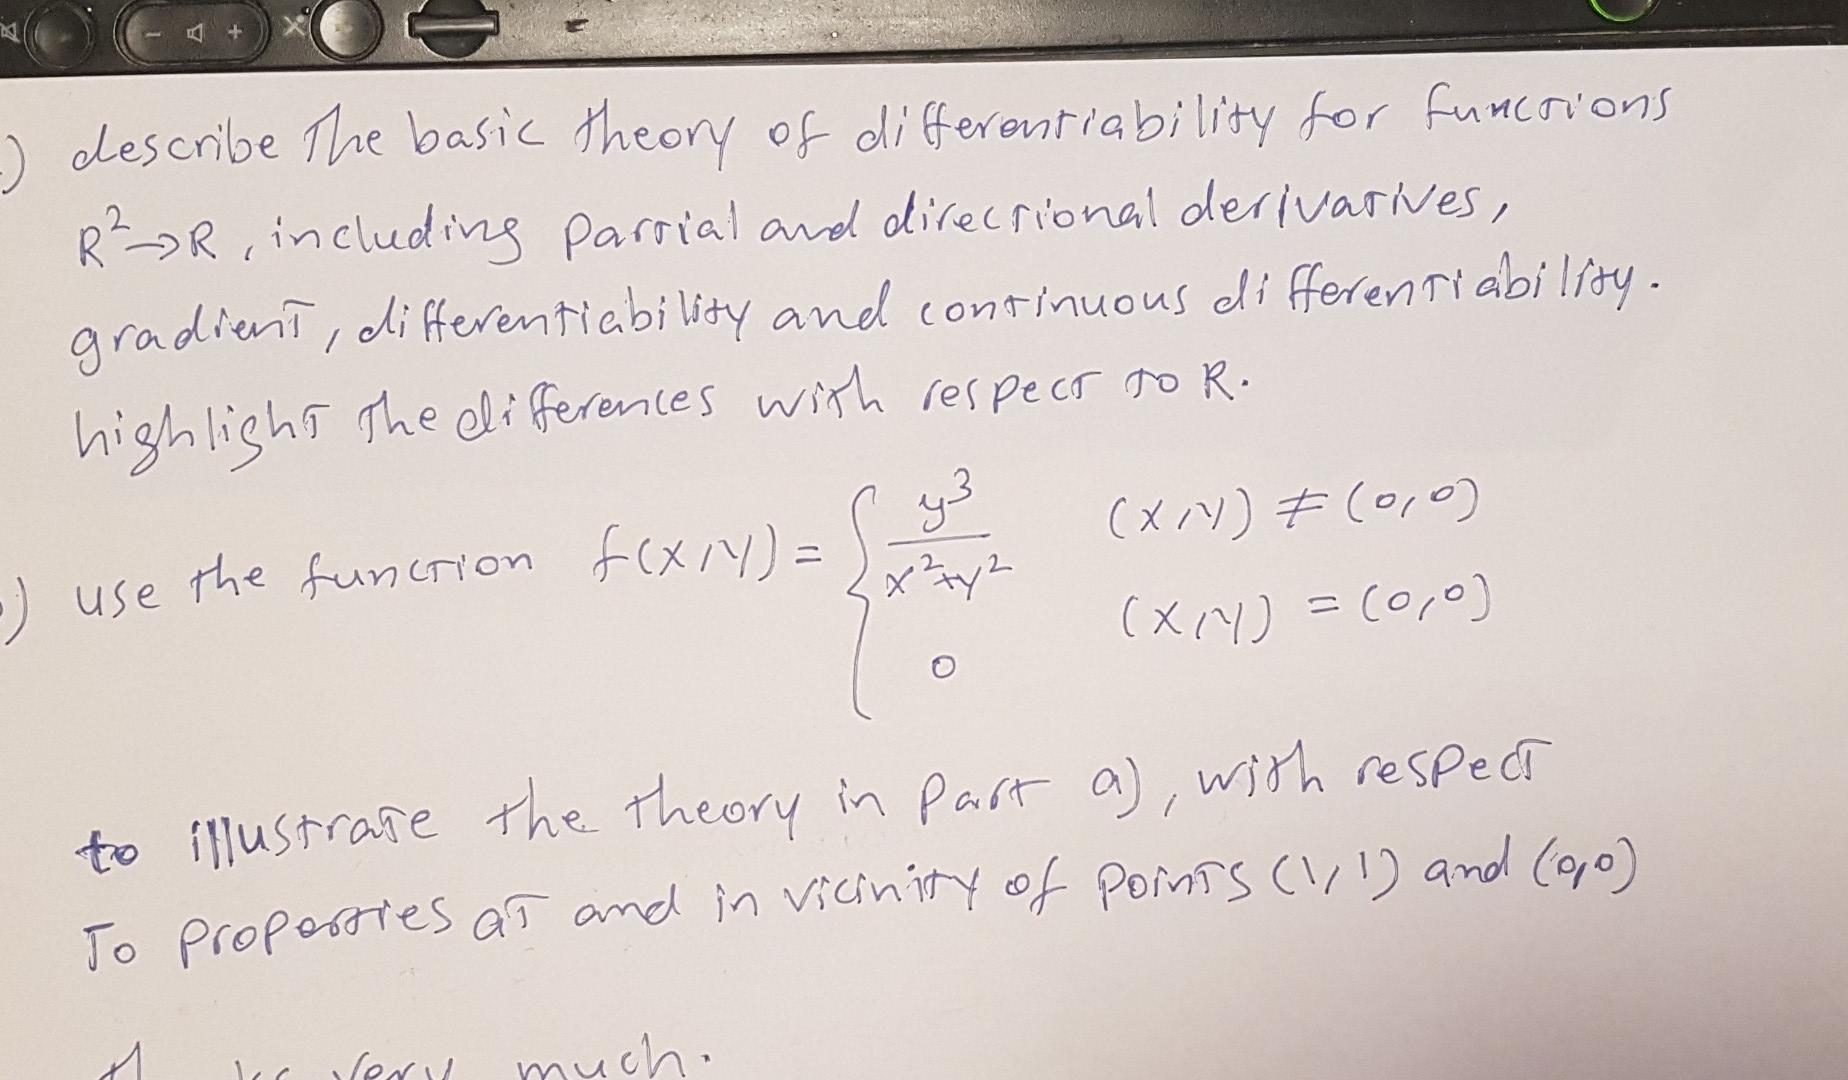 ) describe the basic theory of differentiability for functions
R²→R, including partial and directional derivatives,
gradient, differentiability and continuous differentiability.
highlight the differences with respect to R.
) use the function f(x,y) = { y³/(x²+y²) (x,y) ≠ (0,0)
0 (x,y) = (0,0)
to illustrate the theory in part a), with respect
To properties at and in vicinity of points (1,1) and (0,0)
very much.